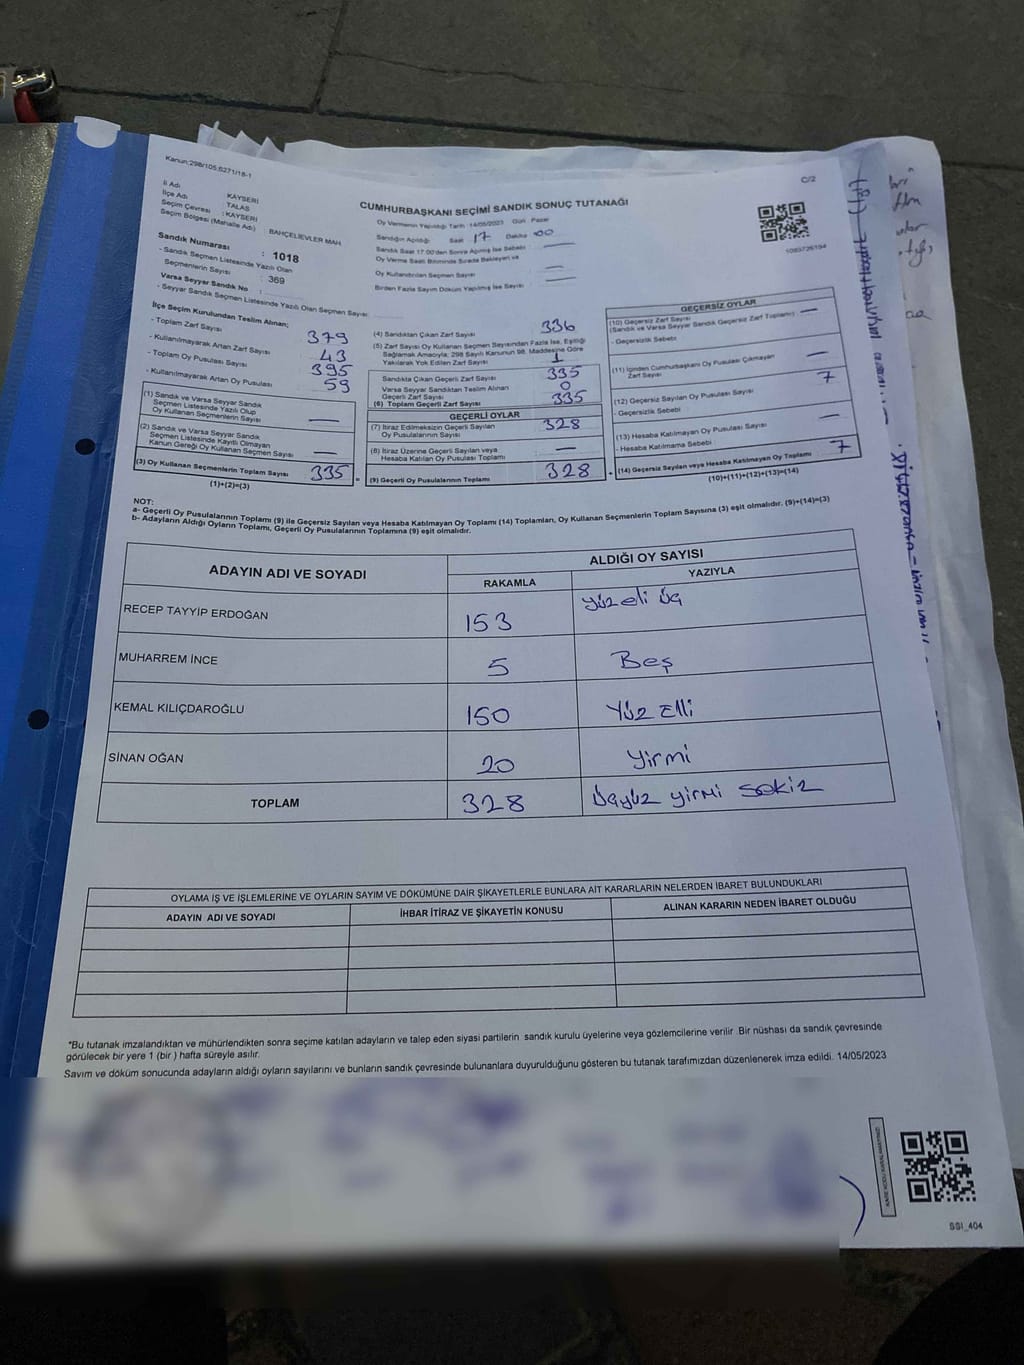 Kanun;298/105;6271/18-1
C/2
İl Adı KAYSERİ
İlçe Adı TALAS
Seçim Çevresi : KAYSERİ
Seçim Bölgesi (Mahalle Adı) BAHÇELİEVLER MAH
CUMHURBAŞKANI SEÇİMİ SANDIK SONUÇ TUTANAĞI
Oy Vermenin Yapıldığı Tarih : 14/05/2023 Gün : Pazar
Sandığın Açıldığı Saat 17 Dakika 00
Sandık Saat 17:00'den Sonra Açılmış İse Sebebi :
Oy Verme Saati Bitiminde Sırada Bekleyen ve
Oy Kullandırılan Seçmen Sayısı
Birden Fazla Sayım Döküm Yapılmış İse Sayısı :
Sandık Numarası : 1018
- Sandık Seçmen Listesinde Yazılı Olan
Seçmenlerin Sayısı : 369
Varsa Seyyar Sandık No :
- Seyyar Sandık Seçmen Listesinde Yazılı Olan Seçmen Sayısı
İlçe Seçim Kurulundan Teslim Alınan;
- Toplam Zarf Sayısı 379
- Kullanılmayarak Artan Zarf Sayısı 43
- Toplam Oy Pusulası Sayısı 395
- Kullanılmayarak Artan Oy Pusulası 59
(1) Sandık ve Varsa Seyyar Sandık
Seçmen Listesinde Yazılı Olup
Oy Kullanan Seçmenlerin Sayısı
(2) Sandık ve Varsa Seyyar Sandık
Seçmen Listesinde Kayıtlı Olmayan
Kanun Gereği Oy Kullanan Seçmen Sayısı
(3) Oy Kullanan Seçmenlerin Toplam Sayısı 335
(1)+(2)=(3)
(4) Sandıktan Çıkan Zarf Sayısı 336
(5) Zarf Sayısı Oy Kullanan Seçmen Sayısından Fazla İse, Eşitliği
Sağlamak Amacıyla; 298 Sayılı Kanunun 98. Maddesine Göre
Yakılarak Yok Edilen Zarf Sayısı 1
Sandıkta Çıkan Geçerli Zarf Sayısı 335
Varsa Seyyar Sandıktan Teslim Alınan
Geçerli Zarf Sayısı 0
(6) Toplam Geçerli Zarf Sayısı 335
GEÇERLİ OYLAR
(7) İtiraz Edilmeksizin Geçerli Sayılan
Oy Pusulalarının Sayısı 328
(8) İtiraz Üzerine Geçerli Sayılan veya
Hesaba Katılan Oy Pusulası Toplamı
(9) Geçerli Oy Pusulalarının Toplamı 328
GEÇERSİZ OYLAR
(10) Geçersiz Zarf Sayısı
(Sandık ve Varsa Seyyar Sandık Geçersiz Zarf Toplamı)
- Geçersizlik Sebebi
(11) İçinden Cumhurbaşkanı Oy Pusulası Çıkmayan
Zarf Sayısı
(12) Geçersiz Sayılan Oy Pusulası Sayısı 7
- Geçersizlik Sebebi
(13) Hesaba Katılmayan Oy Pusulası Sayısı
- Hesaba Katılmama Sebebi
(14) Geçersiz Sayılan veya Hesaba Katılmayan Oy Toplamı 7
(10)+(11)+(12)+(13)=(14)
NOT:
a- Geçerli Oy Pusulasının Toplamı (9) ile Geçersiz Sayılan veya Hesaba Katılmayan Oy Toplamı (14) Toplamları, Oy Kullanan Seçmenlerin Toplam Sayısına (3) eşit olmalıdır. (9)+(14)=(3)
b- Adayların Aldığı Oyların Toplamı, Geçerli Oy Pusulalarının Toplamına (9) eşit olmalıdır.
ADAYIN ADI VE SOYADI
ALDIĞI OY SAYISI
RAKAMLA YAZIYLA
RECEP TAYYİP ERDOĞAN 153 Yüzeli üç
MUHARREM İNCE 5 Beş
KEMAL KILIÇDAROĞLU 150 Yüz Elli
SİNAN OĞAN 20 Yirmi
TOPLAM 328 Üçyüz yirmi sekiz
OYLAMA İŞ VE İŞLEMLERİNE VE OYLARIN SAYIM VE DÖKÜMÜNE DAİR ŞİKAYETLERLE BUNLARA AİT KARARLARIN NELERDEN İBARET BULUNDUKLARI
ADAYIN ADI VE SOYADI İHBAR İTİRAZ VE ŞİKAYETİN KONUSU ALINAN KARARIN NEDEN İBARET OLDUĞU
*Bu tutanak imzalandıktan ve mühürlendikten sonra seçime katılan adayların ve talep eden siyasi partilerin sandık kurulu üyelerine veya gözlemcilerine verilir. Bir nüshası da sandık çevresinde
görülecek bir yere 1 (bir ) hafta süreyle asılır.
Sayım ve döküm sonucunda adayların aldığı oyların sayılarını ve bunların sandık çevresinde bulunanlara duyurulduğunu gösteren bu tutanak tarafımızdan düzenlenerek imza edildi. 14/05/2023
SSI_404